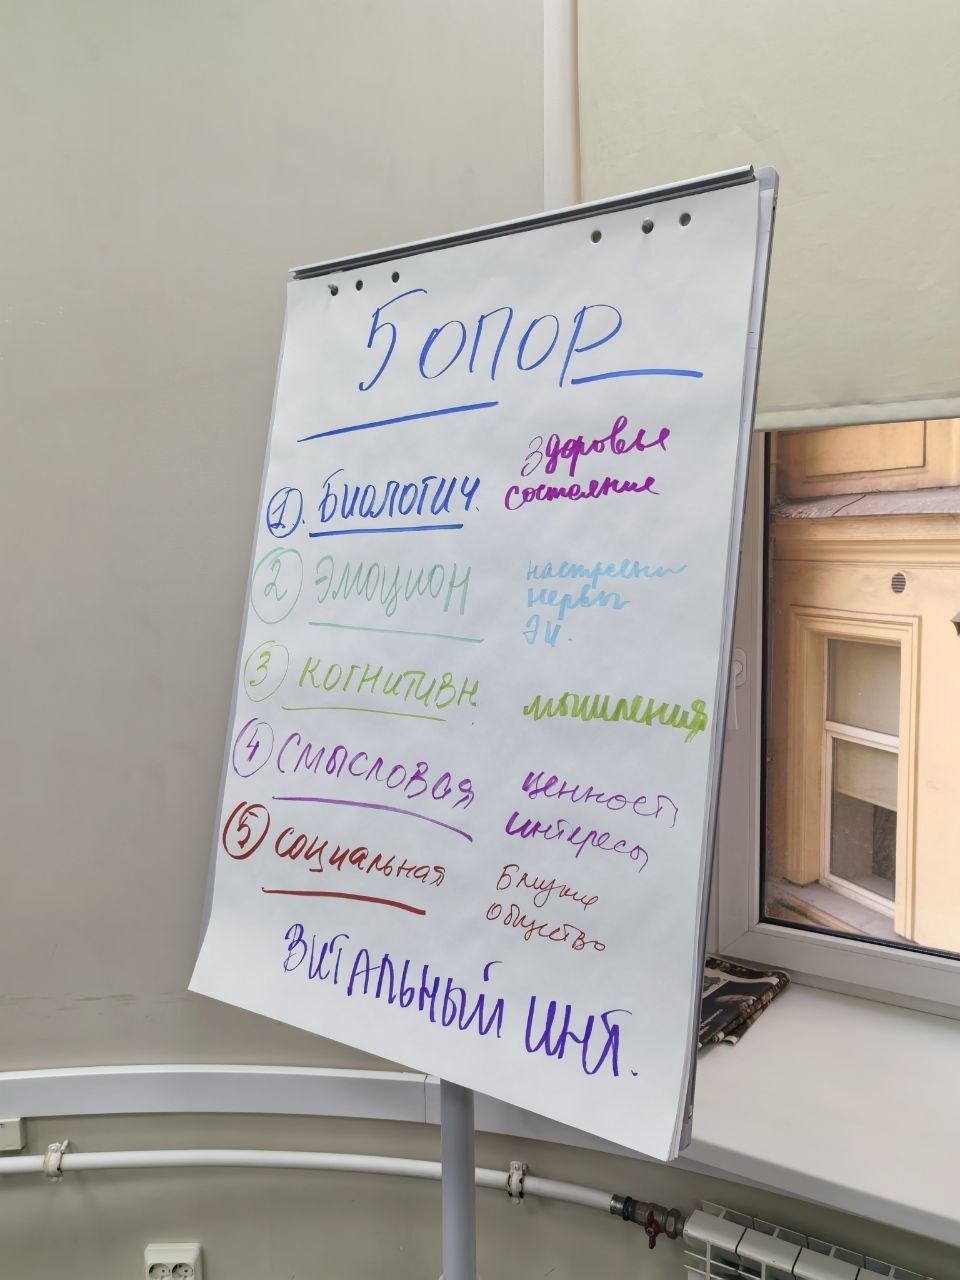 5 ОПОР
1. Биологич.
здоровье
состояние
2 Эмоцион
настроени
нервы
ЭИ.
3 Когнитивн.
мышления
4 Смысловая
ценности
интересы
5 Социальная
Ближе
общество
Витальный инт.